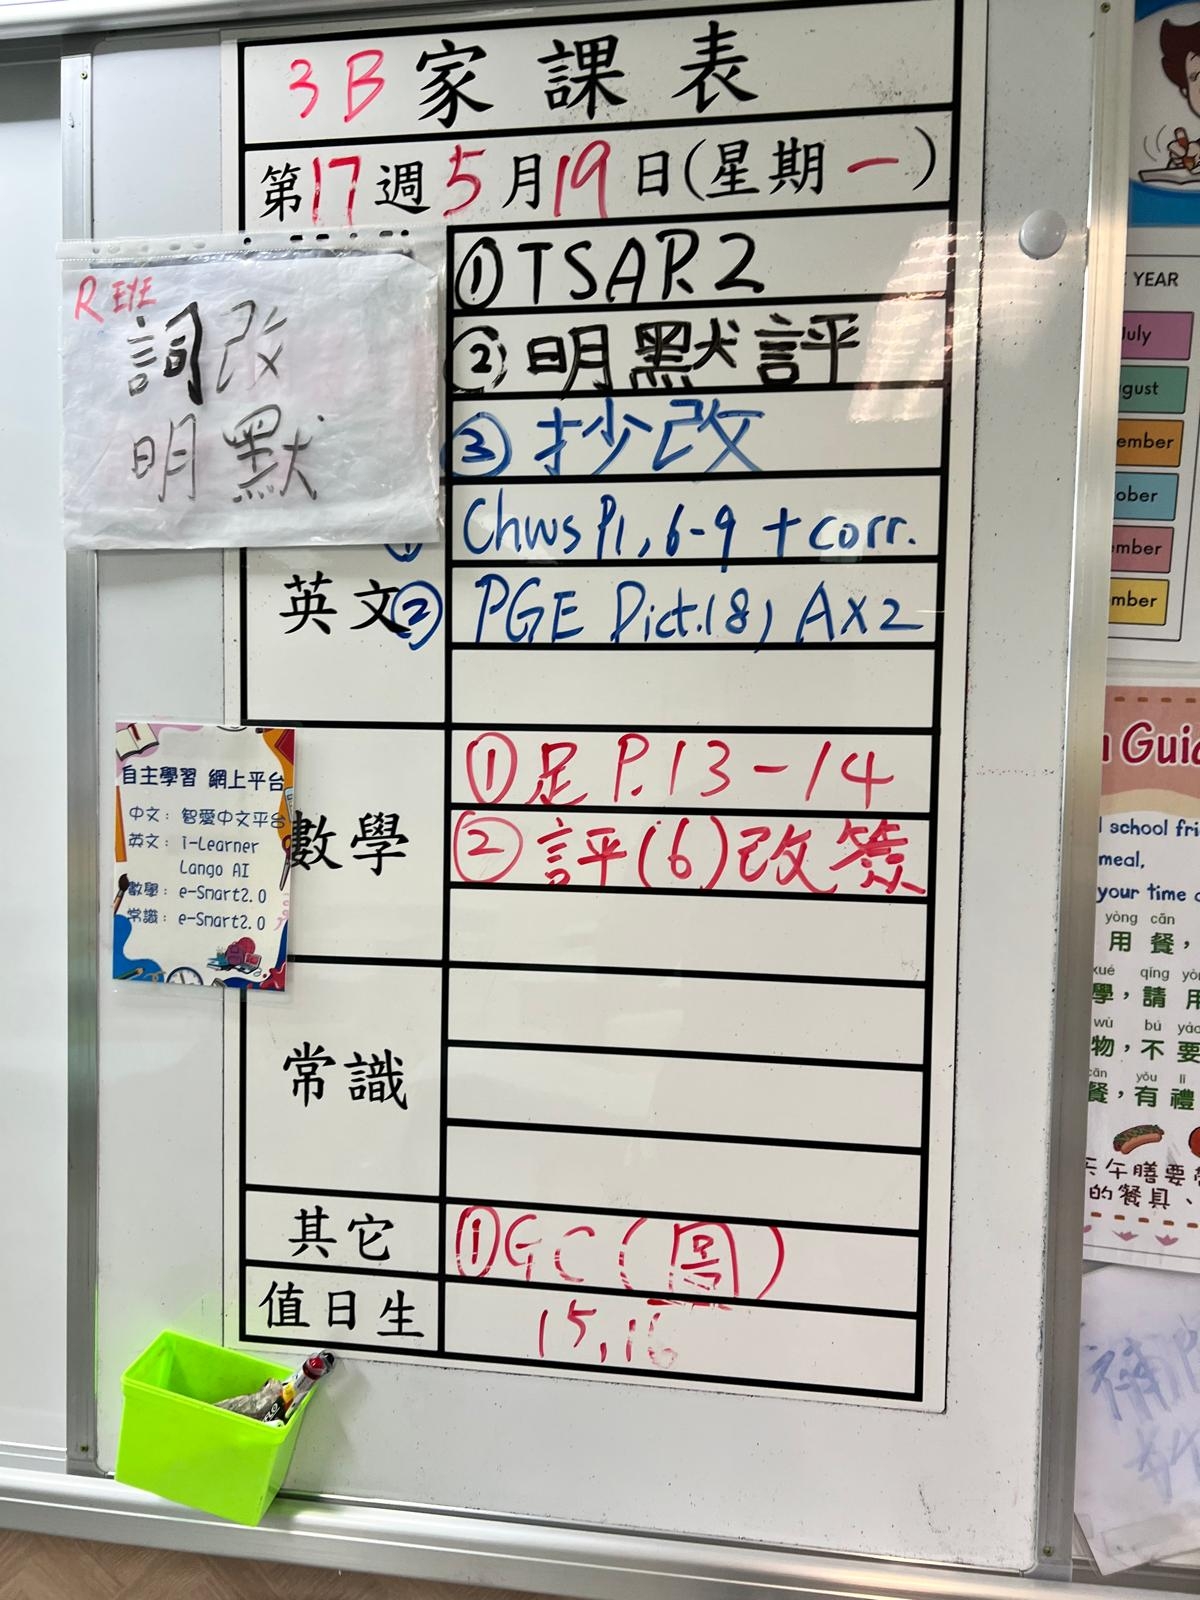 3B 家課表
第17週5月19日(星期一)
R EYE
詞改
明默
①TSAR2
②明默評
③抄改
英文
① Chws P1, 6-9 + corr.
② PGE Dict.(8) AX2
數學
①足 P.13-14
②評(6)改簽
常識
其它
①GC(圖)
值日生
15,16
自主學習 網上平台
中文：智愛中文平台
英文：i-Learner
Lango AI
數學：e-Smart2.0
常識：e-Smart2.0
YEAR
July
gust
ember
ober
ember
mber
Guid
school fri
meal,
your time
yòng cān
用餐，
xué qǐng
學，請用
wù bú yào
物，不要
cān yǒu lǐ
餐，有禮
午膳要
的餐具、